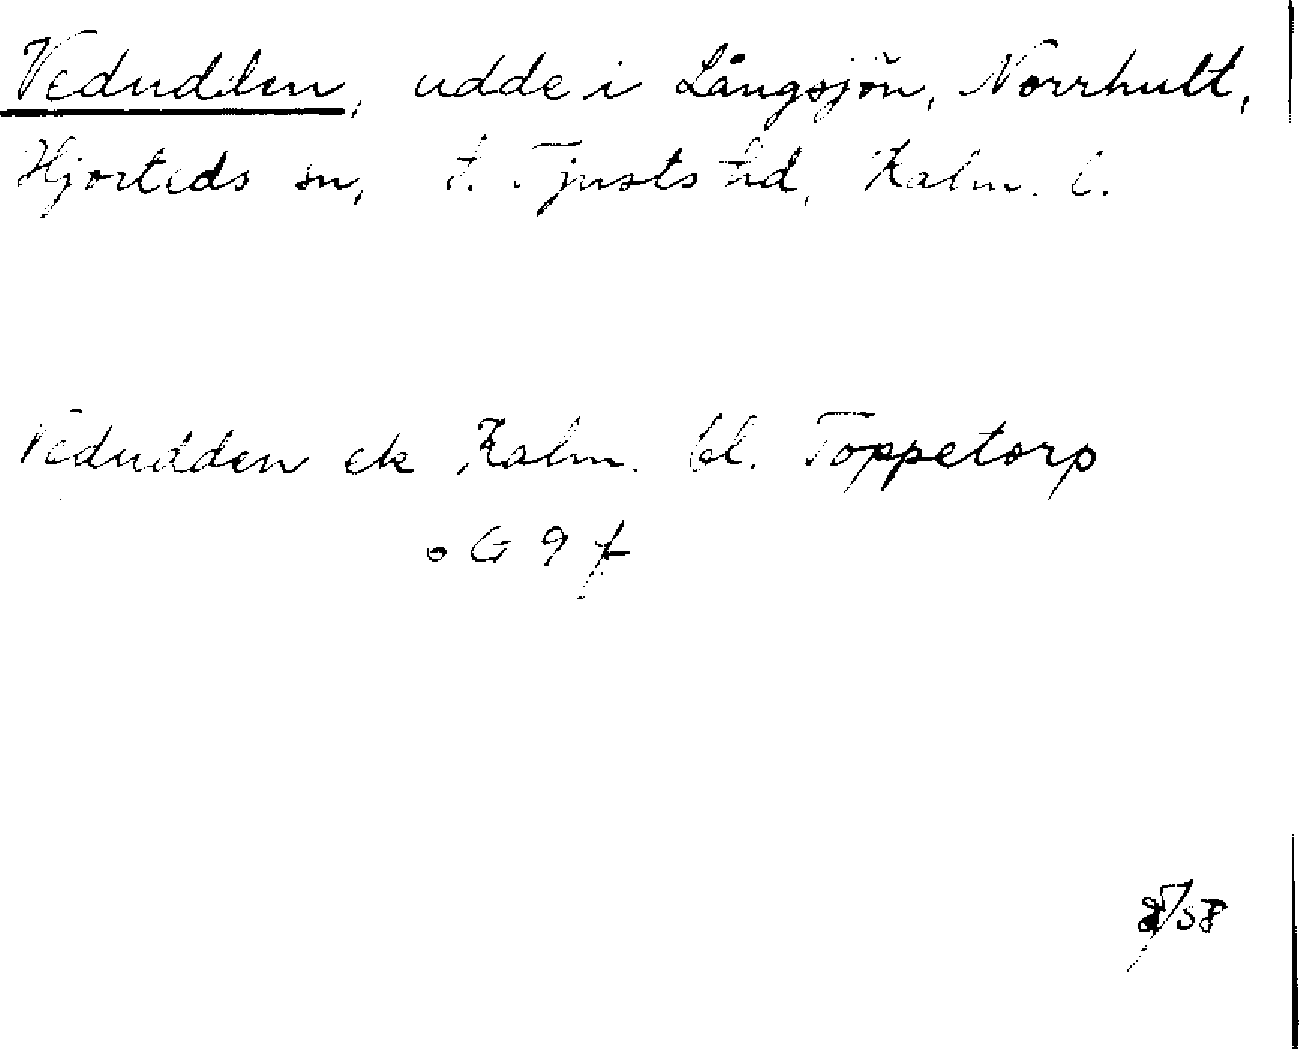 Vedudden, udde i Långsjön, Norrhult,
Hjorteds sn, s. Tjusts hd, Kalm. l.
Vedudden ek Kalm. bl. Toppetorp
o G 9 f